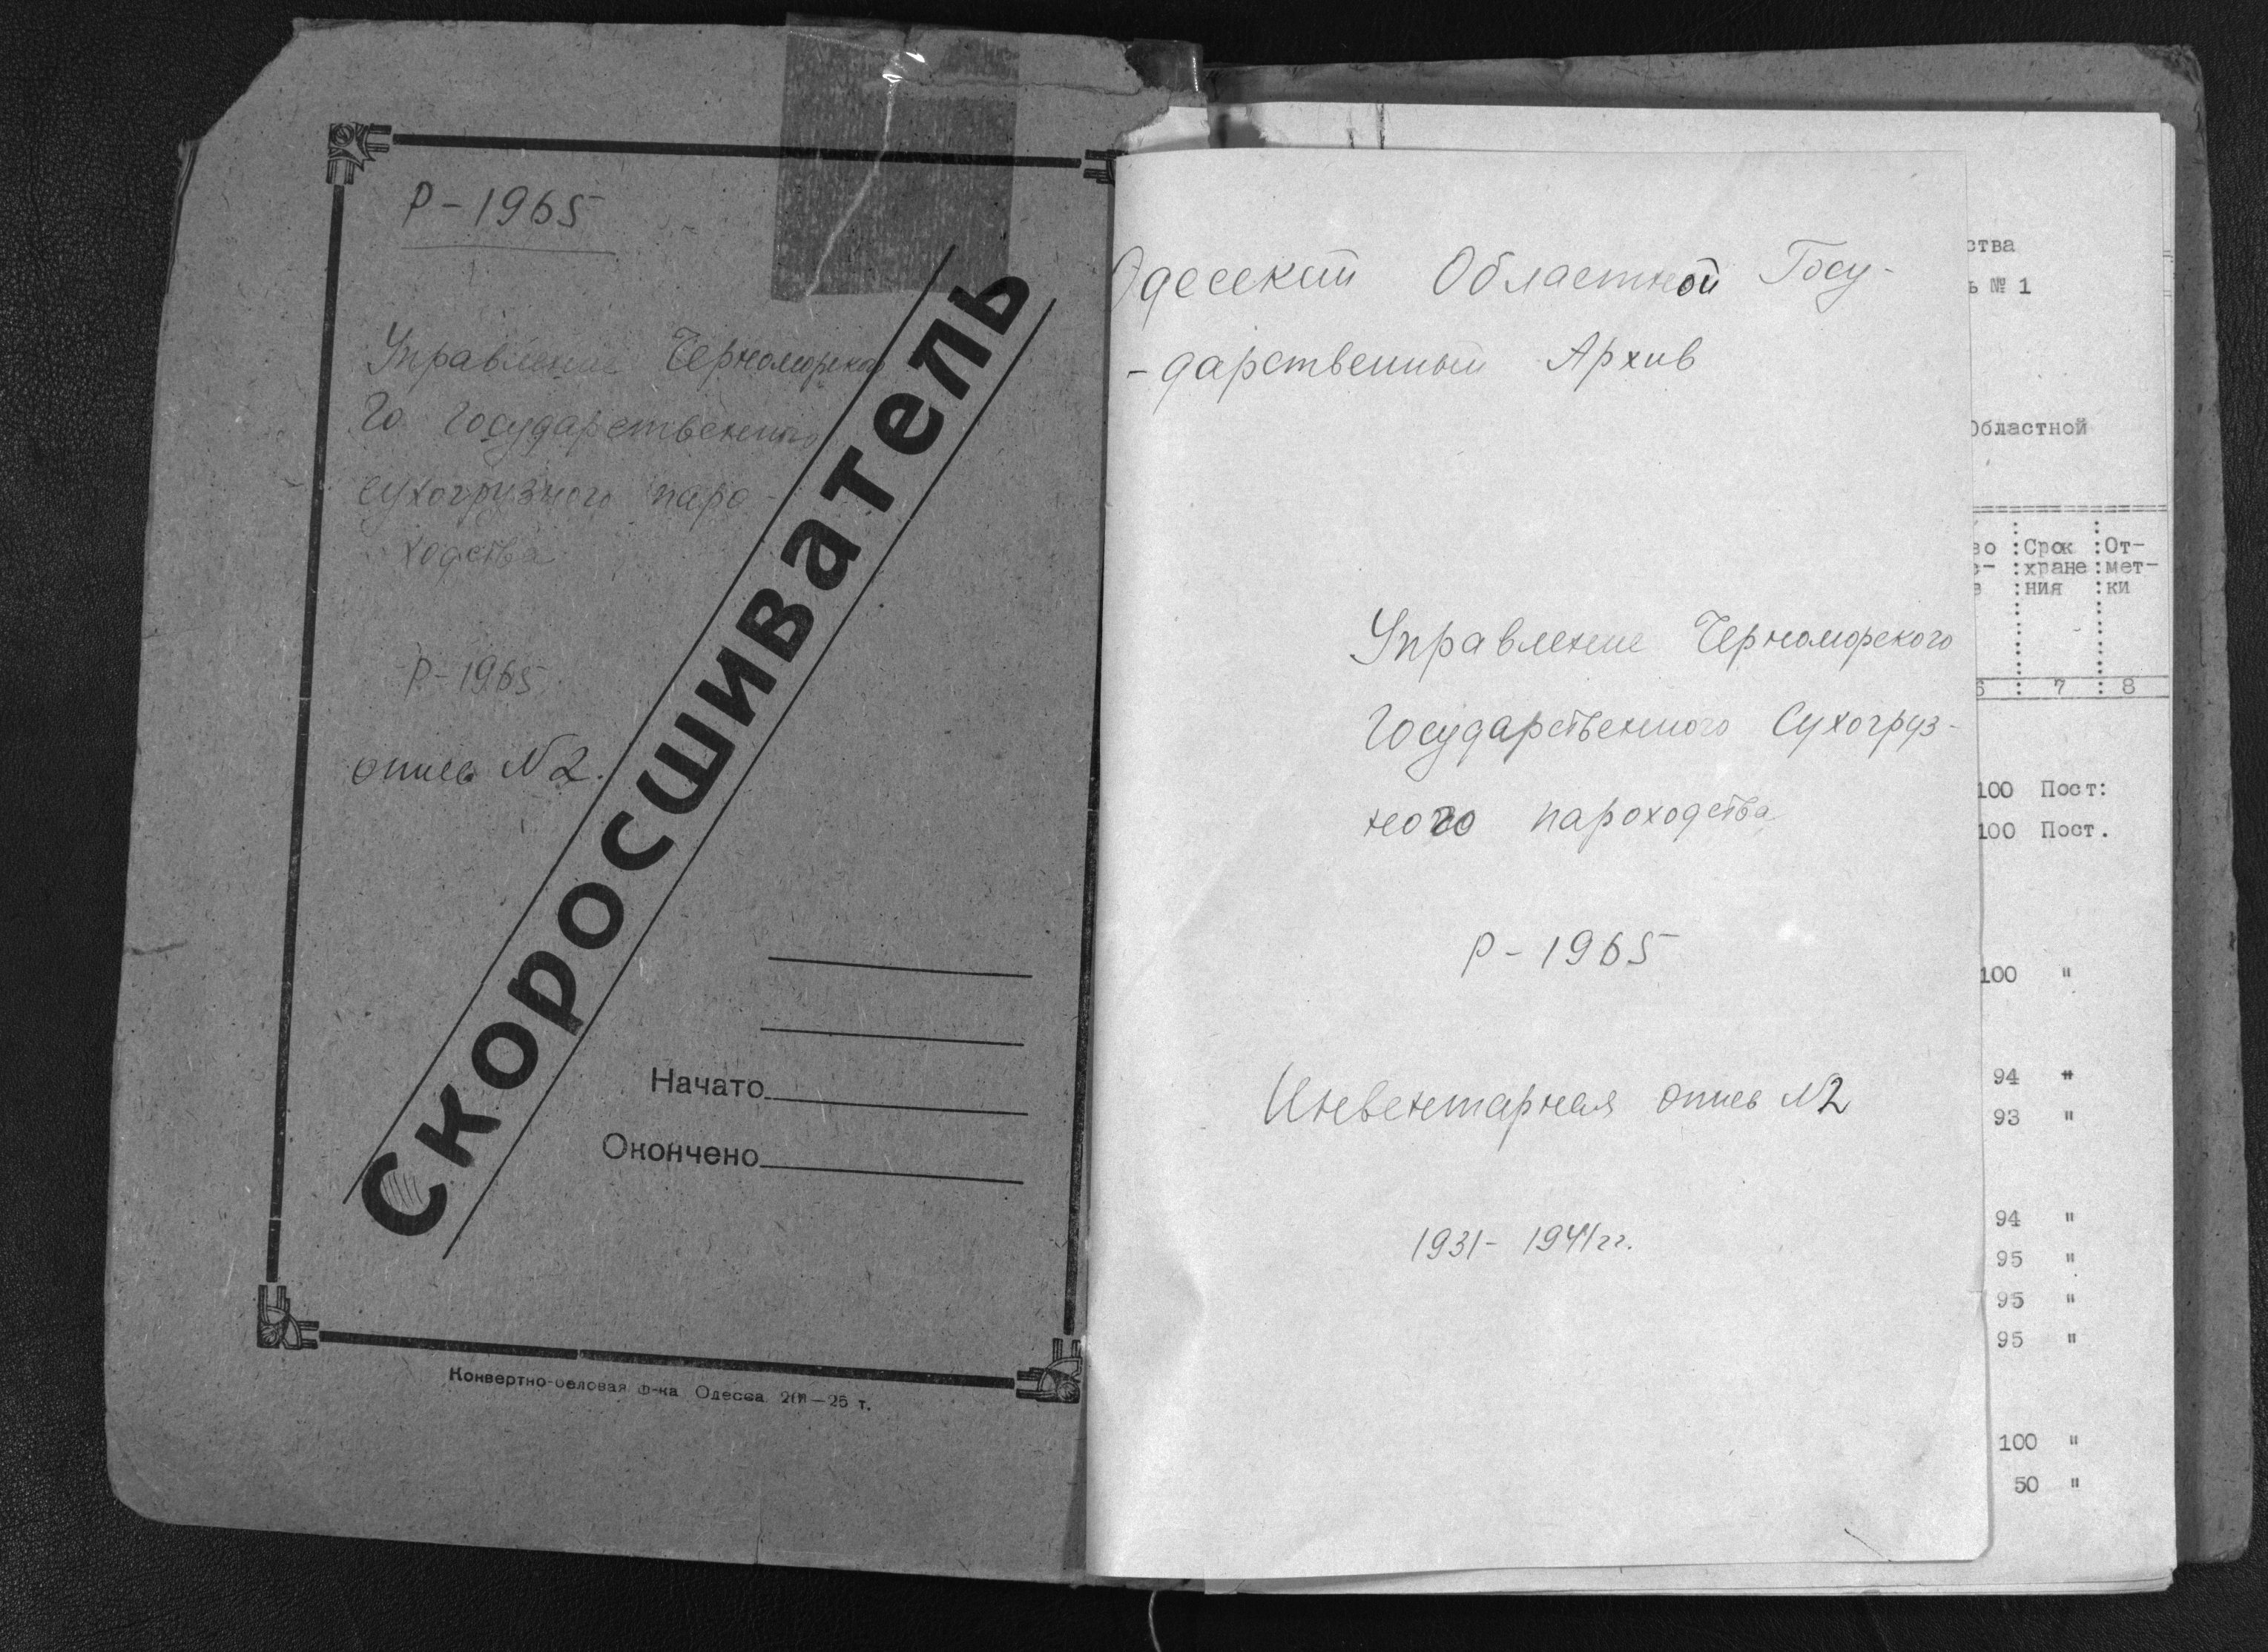 Р-1965
Управление Черноморско
го государственного
сухогрузного паро-
ходства
Р-1965
опись №2.
Скоросшиватель
Начато
Окончено
Конвертно-беловая ф-ка Одесса 25 т.
Одесский Областной Госу-
-дарственный Архив
Управление Черноморского
Государственного Сухогруз-
ного пароходства
Р-1965
Инвентарная опись №2
1931-1941гг.
ства
ь № 1
Областной
во : Срок : От-
с- : хране : мет-
в : ния : ки
6 : 7 : 8
100 Пост:
100 Пост.
100 "
94 "
93 "
94 "
95 "
95 "
95 "
100 "
50 "